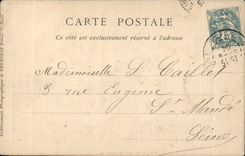 CARTE POSTALE
Ce côté est exclusivement réservé à l'adresse
Mademoiselle L. Caillet
3 rue Eugénie
St Mandé
Seine